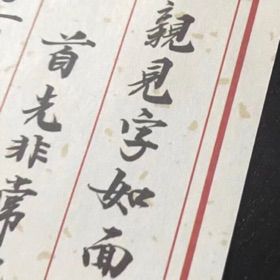 親見字如面
首先非常